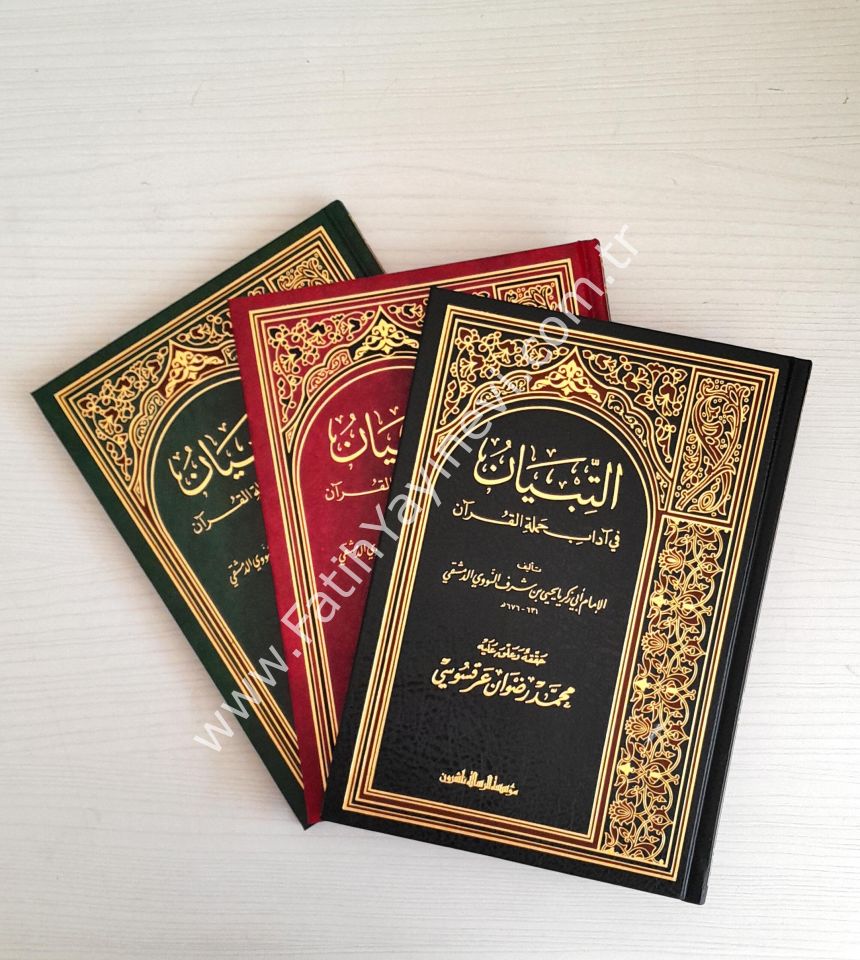 التِّبْيَانُ
في آدابِ حملةِ القُرآن
تأليف
الإمام أبي زكريا يحيى بن شرف النّووي الدمشقي
٦٣١ - ٦٧٦ هـ
حَقّقهُ وَعلّق عَليْه
محمّد رضوان عرقسُوسي
مؤسسة الرسالة ناشرون
يَانُ
لةِ القُرآن
ووي الدمشقي
بْيَانُ
لةِ القُرآن
النّووي الدمشقي
www.FatihYayinevi.com.tr